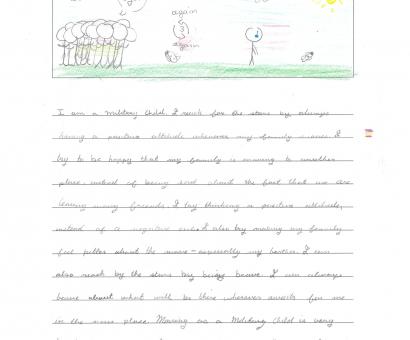 again
again
I am a Military Child. I reach for the stars by always
having a positive attitude whenever my family moves. I
try to be happy that my family is moving to another
place instead of being sad about the fact that we are
leaving many friends. I try thinking a positive attitude,
instead of a negative one. I also try making my family
feel better about the move - especially my brother. I can
also reach by the stars by being brave. I am always
brave about what will be there wherever awaits for me
in the new place. Moving as a Military Child is very